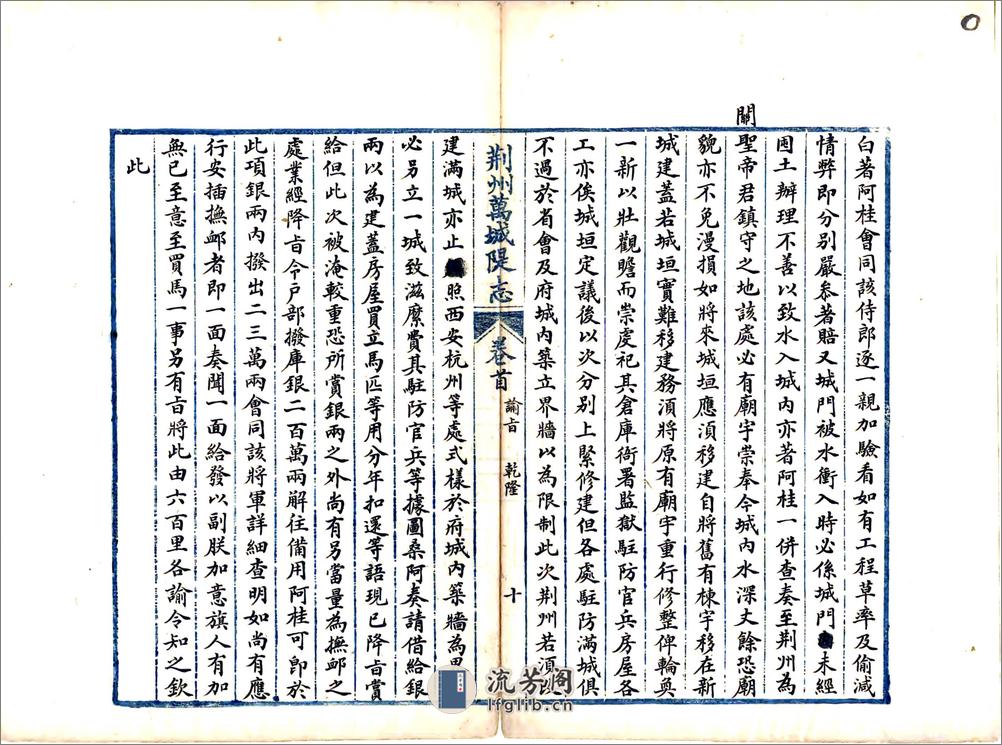 白著阿桂會同該侍郎逐一親加驗看如有工程草率及偷減
情弊即分別嚴叅著賠又城門被水衝入時必係城門未經
囤土辦理不善以致水入城內亦著阿桂一併查奏至荆州為
關
聖帝君鎮守之地該處必有廟宇崇奉今城內水深丈餘恐廟
貌亦不免漫損如將來城垣應湏移建自將舊有棟宇移在新
城建蓋若城垣實難移建務湏將原有廟宇重行修整俾輪奐
一新以壯觀瞻而崇虔祀其倉庫衙署監獄駐防官兵房屋各
工亦俟城垣定議後以次分別上緊修建但各處駐防滿城俱
不過於省會及府城內築立界牆以為限制此次荆州若湏改
荆州萬城隄志
卷首
諭㫖
乾隆
十
建滿城亦止照西安杭州等處式樣於府城內築牆為界
必另立一城致滋縻費其駐防官兵等據圖桑阿奏請借給銀
兩以為建蓋房屋買立馬匹等用分年扣還等語現已降㫖賞
給但此次被淹較重恐所賞銀兩之外尚有另當量為撫邺之
處業經降㫖令户部撥庫銀二百萬兩解往備用阿桂可即於
此項銀兩內撥出二三萬兩會同該將軍詳細查明如尚有應
行安插撫邺者即一面奏聞一面給發以副朕加意旗人有加
無已至意至買馬一事另有㫖將此由六百里各諭令知之欽
此
流芳阁
lfglib.cn